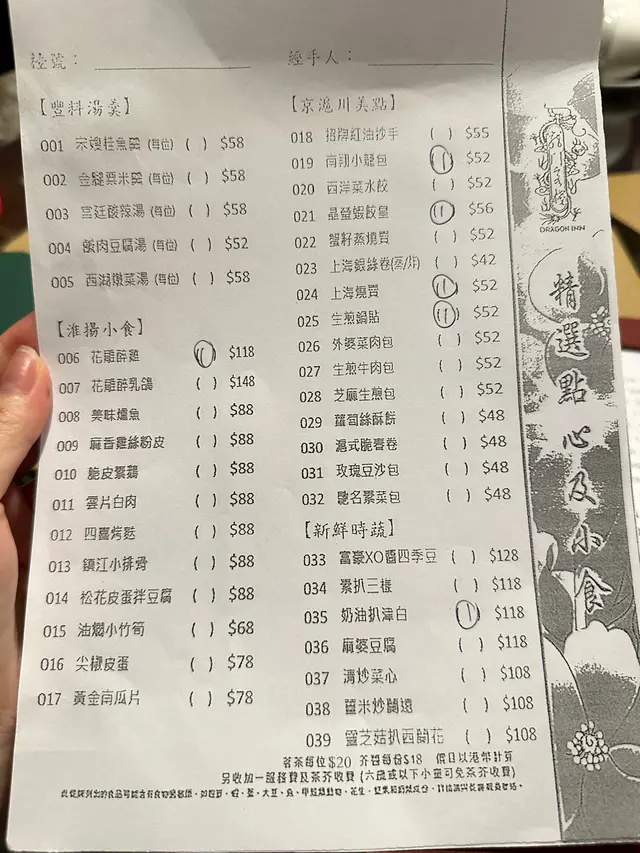 檯號：
經手人：
【豐料湯羹】
001 宋嫂桂魚羹 (每位) ( ) $58
002 金腿粟米羹 (每位) ( ) $58
003 宮廷酸辣湯 (每位) ( ) $58
004 飯肉豆腐湯 (每位) ( ) $52
005 西湖燉菜湯 (每位) ( ) $58
【淮揚小食】
006 花雕醉雞 ( ) $118
007 花雕醉乳鴿 ( ) $148
008 美味燻魚 ( ) $88
009 麻香雞絲粉皮 ( ) $88
010 脆皮素鵝 ( ) $88
011 雲片白肉 ( ) $88
012 四喜烤麩 ( ) $88
013 鎮江小排骨 ( ) $88
014 松花皮蛋拌豆腐 ( ) $88
015 油燜小竹筍 ( ) $68
016 尖椒皮蛋 ( ) $78
017 黃金南瓜片 ( ) $78
【京滬川美點】
018 招牌紅油抄手 ( ) $55
019 南翔小籠包 ( ) $52
020 西洋菜水餃 ( ) $52
021 晶瑩蝦餃皇 ( ) $56
022 蟹籽蒸燒賣 ( ) $52
023 上海銀絲卷(蒸/炸) ( ) $42
024 上海燒賣 ( ) $52
025 生煎鍋貼 ( ) $52
026 外婆菜肉包 ( ) $52
027 生煎牛肉包 ( ) $52
028 芝麻生煎包 ( ) $52
029 蘿蔔絲酥餅 ( ) $48
030 滬式脆春卷 ( ) $48
031 玫瑰豆沙包 ( ) $48
032 馳名素菜包 ( ) $48
【新鮮時蔬】
033 富豪XO醬四季豆 ( ) $128
034 素扒三樣 ( ) $118
035 奶油扒津白 ( ) $118
036 麻婆豆腐 ( ) $118
037 清炒菜心 ( ) $108
038 薑米炒蘭遠 ( ) $108
039 靈芝菇扒西蘭花 ( ) $108
茗茶每位$20 芥醬每份$18 價目以港幣計算
另收加一服務費及茶芥收費 (六歲或以下小童可免茶芥收費)
DRAGON INN
精選點心及小食